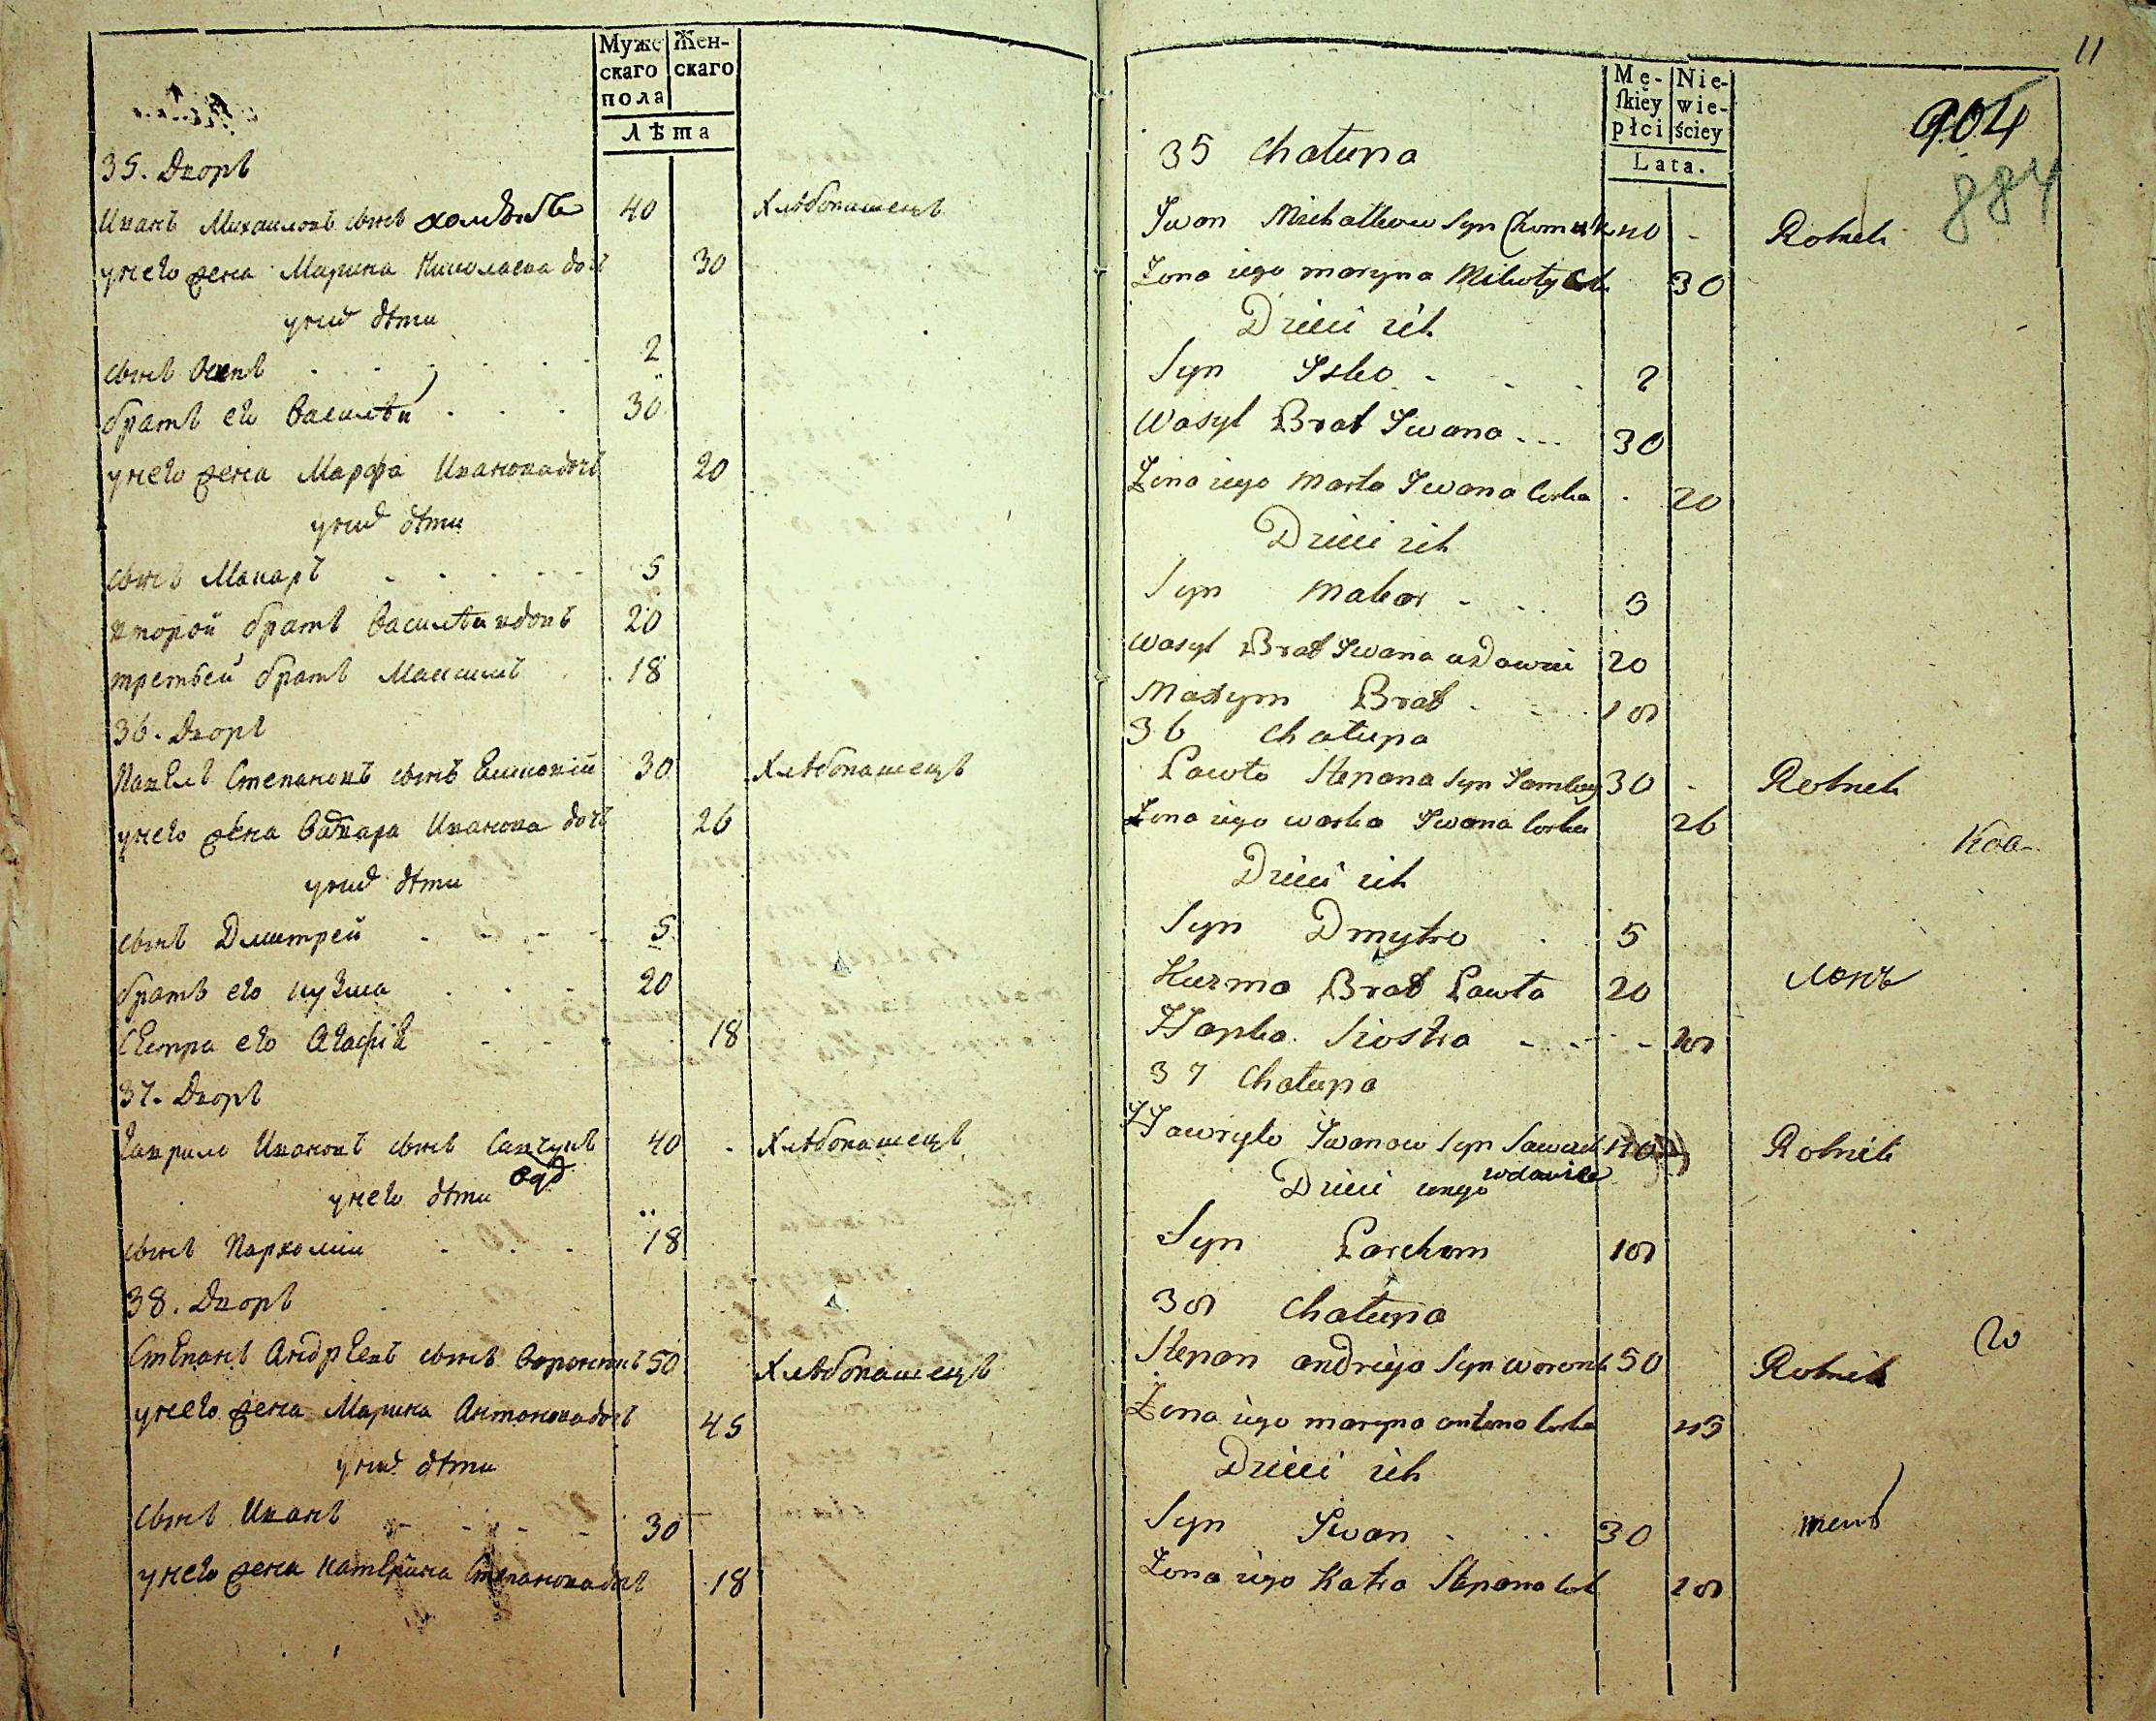 Муже
скаго
пола
Жен-
скаго
Лѣта
35. Дворъ
Иванъ Михаиловъ сынъ 40 Хлѣбопашецъ
унего жена Марина Николаева дочъ 30
унихъ дѣти
сынъ Осипъ 2
братъ его Василѣи 30
унего жена Марфа Иванова дочъ 20
унихъ дѣти
сынъ Макаръ 5
второй братъ Василѣи вдовъ 20
третьей братъ Максимъ 18
36. Дворъ
Павелъ Степановъ сынъ 30 Хлѣбопашецъ
унего жена Варвара Иванова дочъ 26
унихъ дѣти
сынъ Дмитрей 5
братъ его кузма 20
Сестра его Агафия 18
37. Дворъ
Гаврило Ивановъ сынъ Савчукъ 40 - Хлѣбопашецъ
вдов
унего дѣти
сынъ Пархомии 18
38. Дворъ
Степанъ Андреевъ сынъ 50 Хлѣбопашецъ
унего жена Марина Антонова дочъ 45
унихъ дѣти
сынъ Иванъ 30
унего жена катерина Степанова дочъ 18
11
Mę-
ſkiéy
płci
Nie-
wie-
ściey
Lata.
904
884
35 Chałupa
Iwan Michałkow Syn 40 - Rolnik
Żona iego maryna Mikoły Cork 30
Dzieci ich
Syn Isko 2
Wasyl Brat Iwana 30
Żona iego Marta Iwana Corka 20
Dzieci ich
Syn Makar 5
Wasyl Brat Iwana wdawiec 20
Maxym Brat 18
36 Chałupa
Pawło Stepana Syn 30 - Rolnik
Żona iego warka Iwana Corka 26
Ков-
Dzieci ich
Syn Dmytro 5
Kuzma Brat Pawła 20
Hapka Siostra 18
37 Chałupa
Hawryło Iwanow Syn 40 Rolnik
wdawiec
Dzieci onego
Syn Parchom 18
38 Chałupa
Stepan andrieja Syn 50 Rolnik
Żona iego maryna antona Corka 45
Dzieci ich
Syn Iwan 30
Żona iego Katra Stepana Cork 18